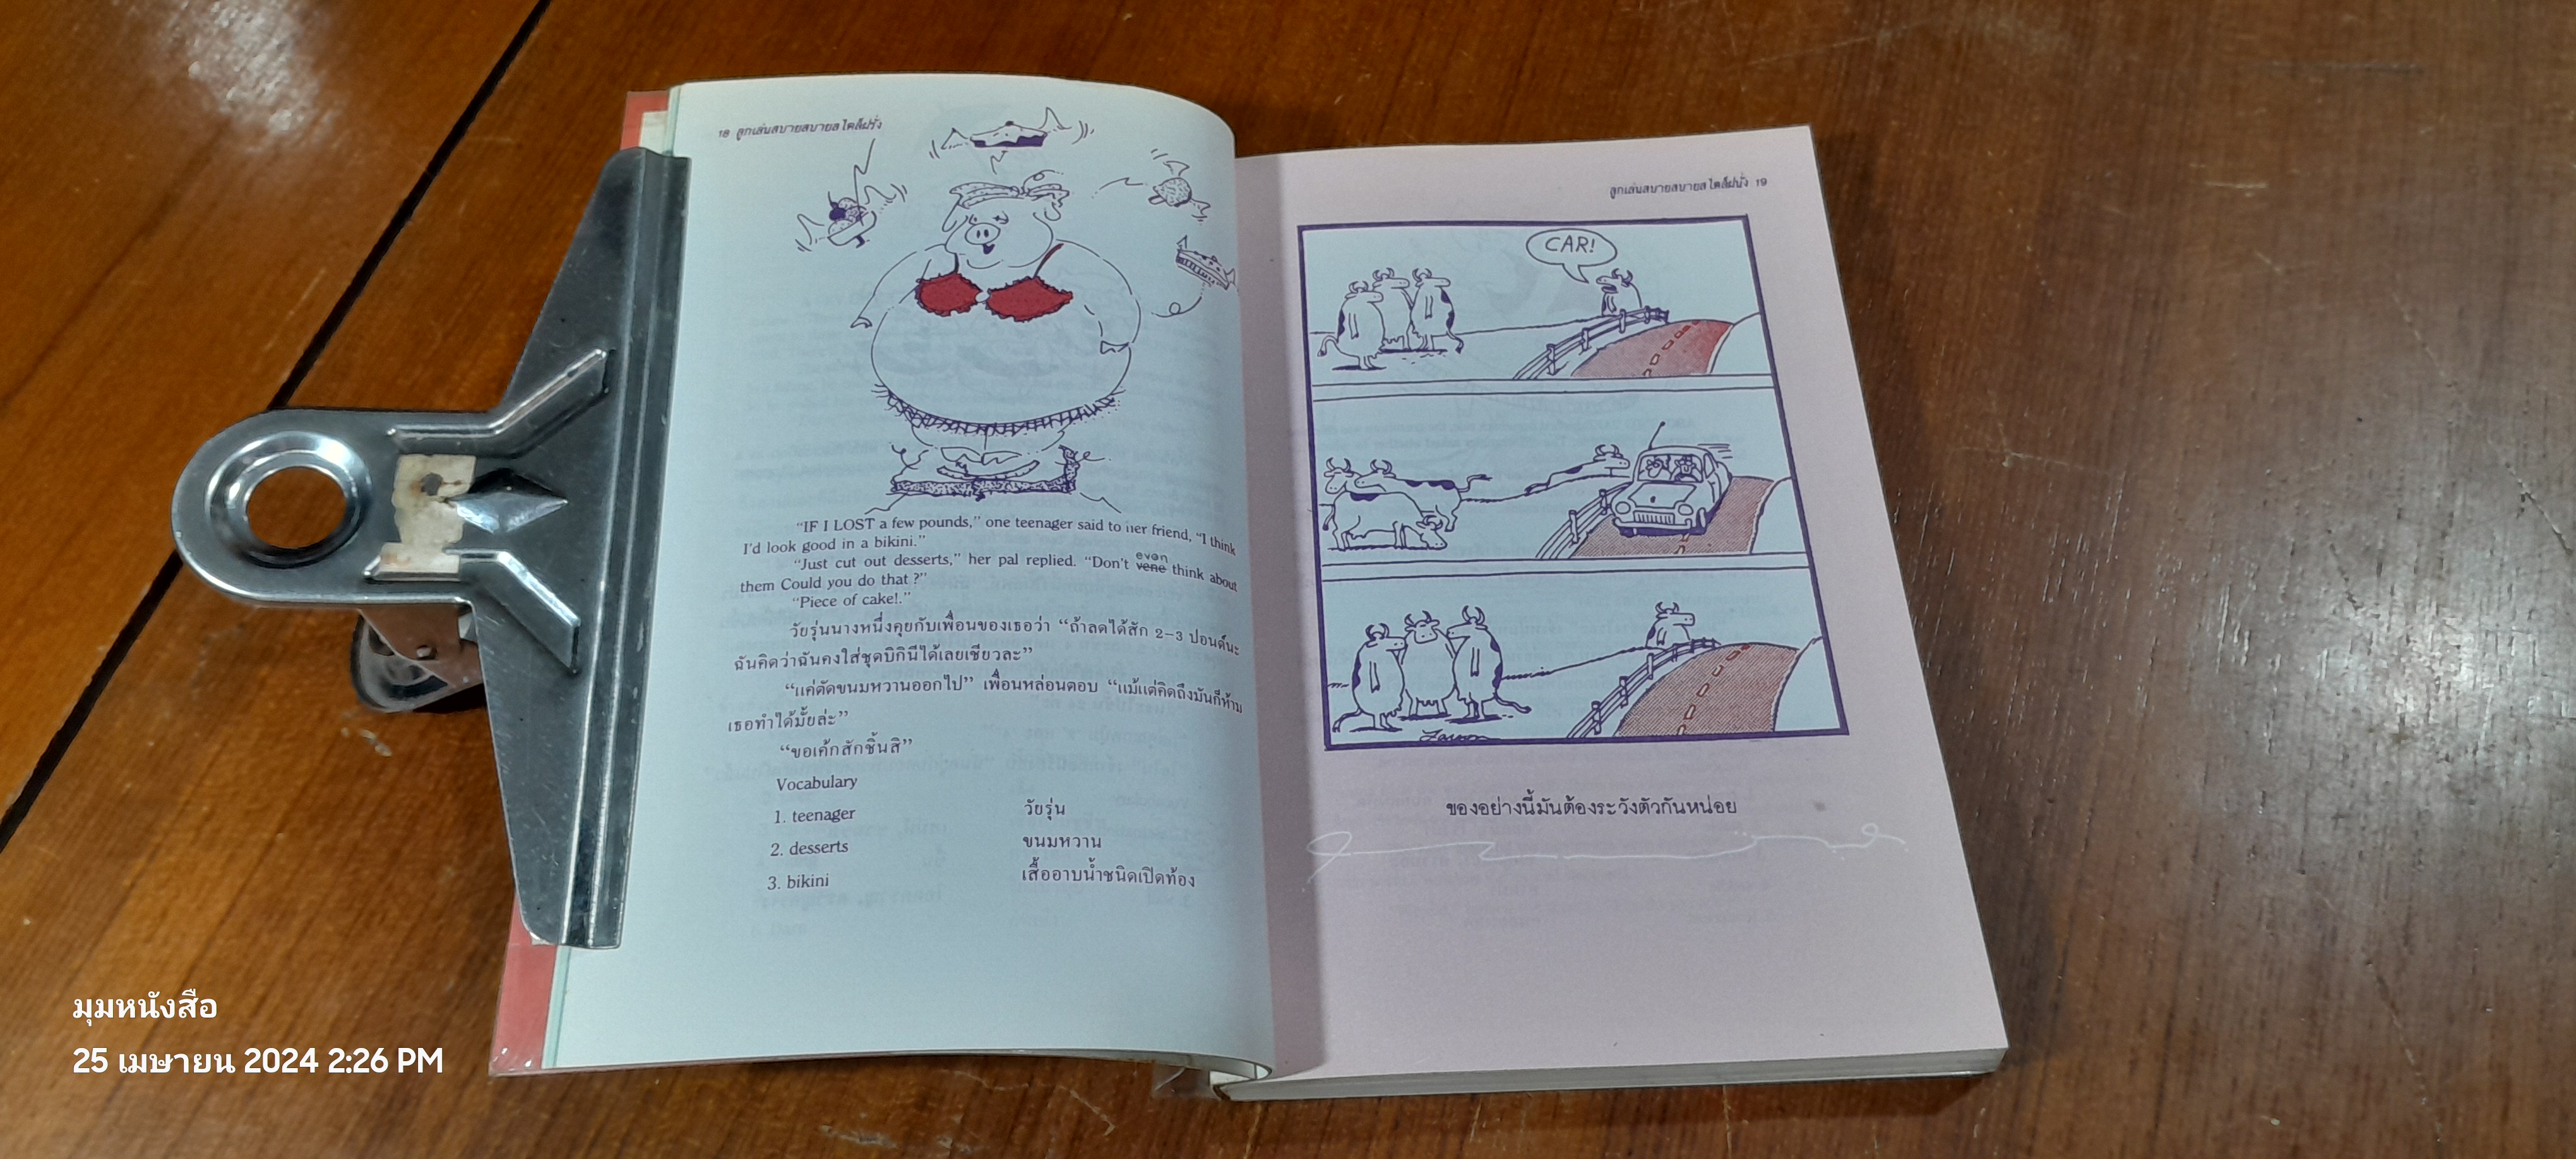 18 ลูกเล่นสบายสบายสไตล์ฝรั่ง
"IF I LOST a few pounds," one teenager said to her friend, "I think
I'd look good in a bikini."
"Just cut out desserts," her pal replied. "Don't vene think about
even
them Could you do that ?"
"Piece of cake!."
วัยรุ่นนางหนึ่งคุยกับเพื่อนของเธอว่า "ถ้าลดได้สัก 2–3 ปอนด์นะ
ฉันคิดว่าฉันคงใส่ชุดบิกินีได้เลยเชียวละ"
"แค่ตัดขนมหวานออกไป" เพื่อนหล่อนตอบ "แม้แต่คิดถึงมันก็ห้าม
เธอทำได้มั้ยล่ะ"
"ขอเค้กสักชิ้นสิ"
Vocabulary
1. teenager วัยรุ่น
2. desserts ขนมหวาน
3. bikini เสื้ออาบน้ำชนิดเปิดท้อง
ลูกเล่นสบายสบายสไตล์ฝรั่ง 19
CAR!
Larson
ของอย่างนี้มันต้องระวังตัวกันหน่อย
มุมหนังสือ
25 เมษายน 2024 2:26 PM